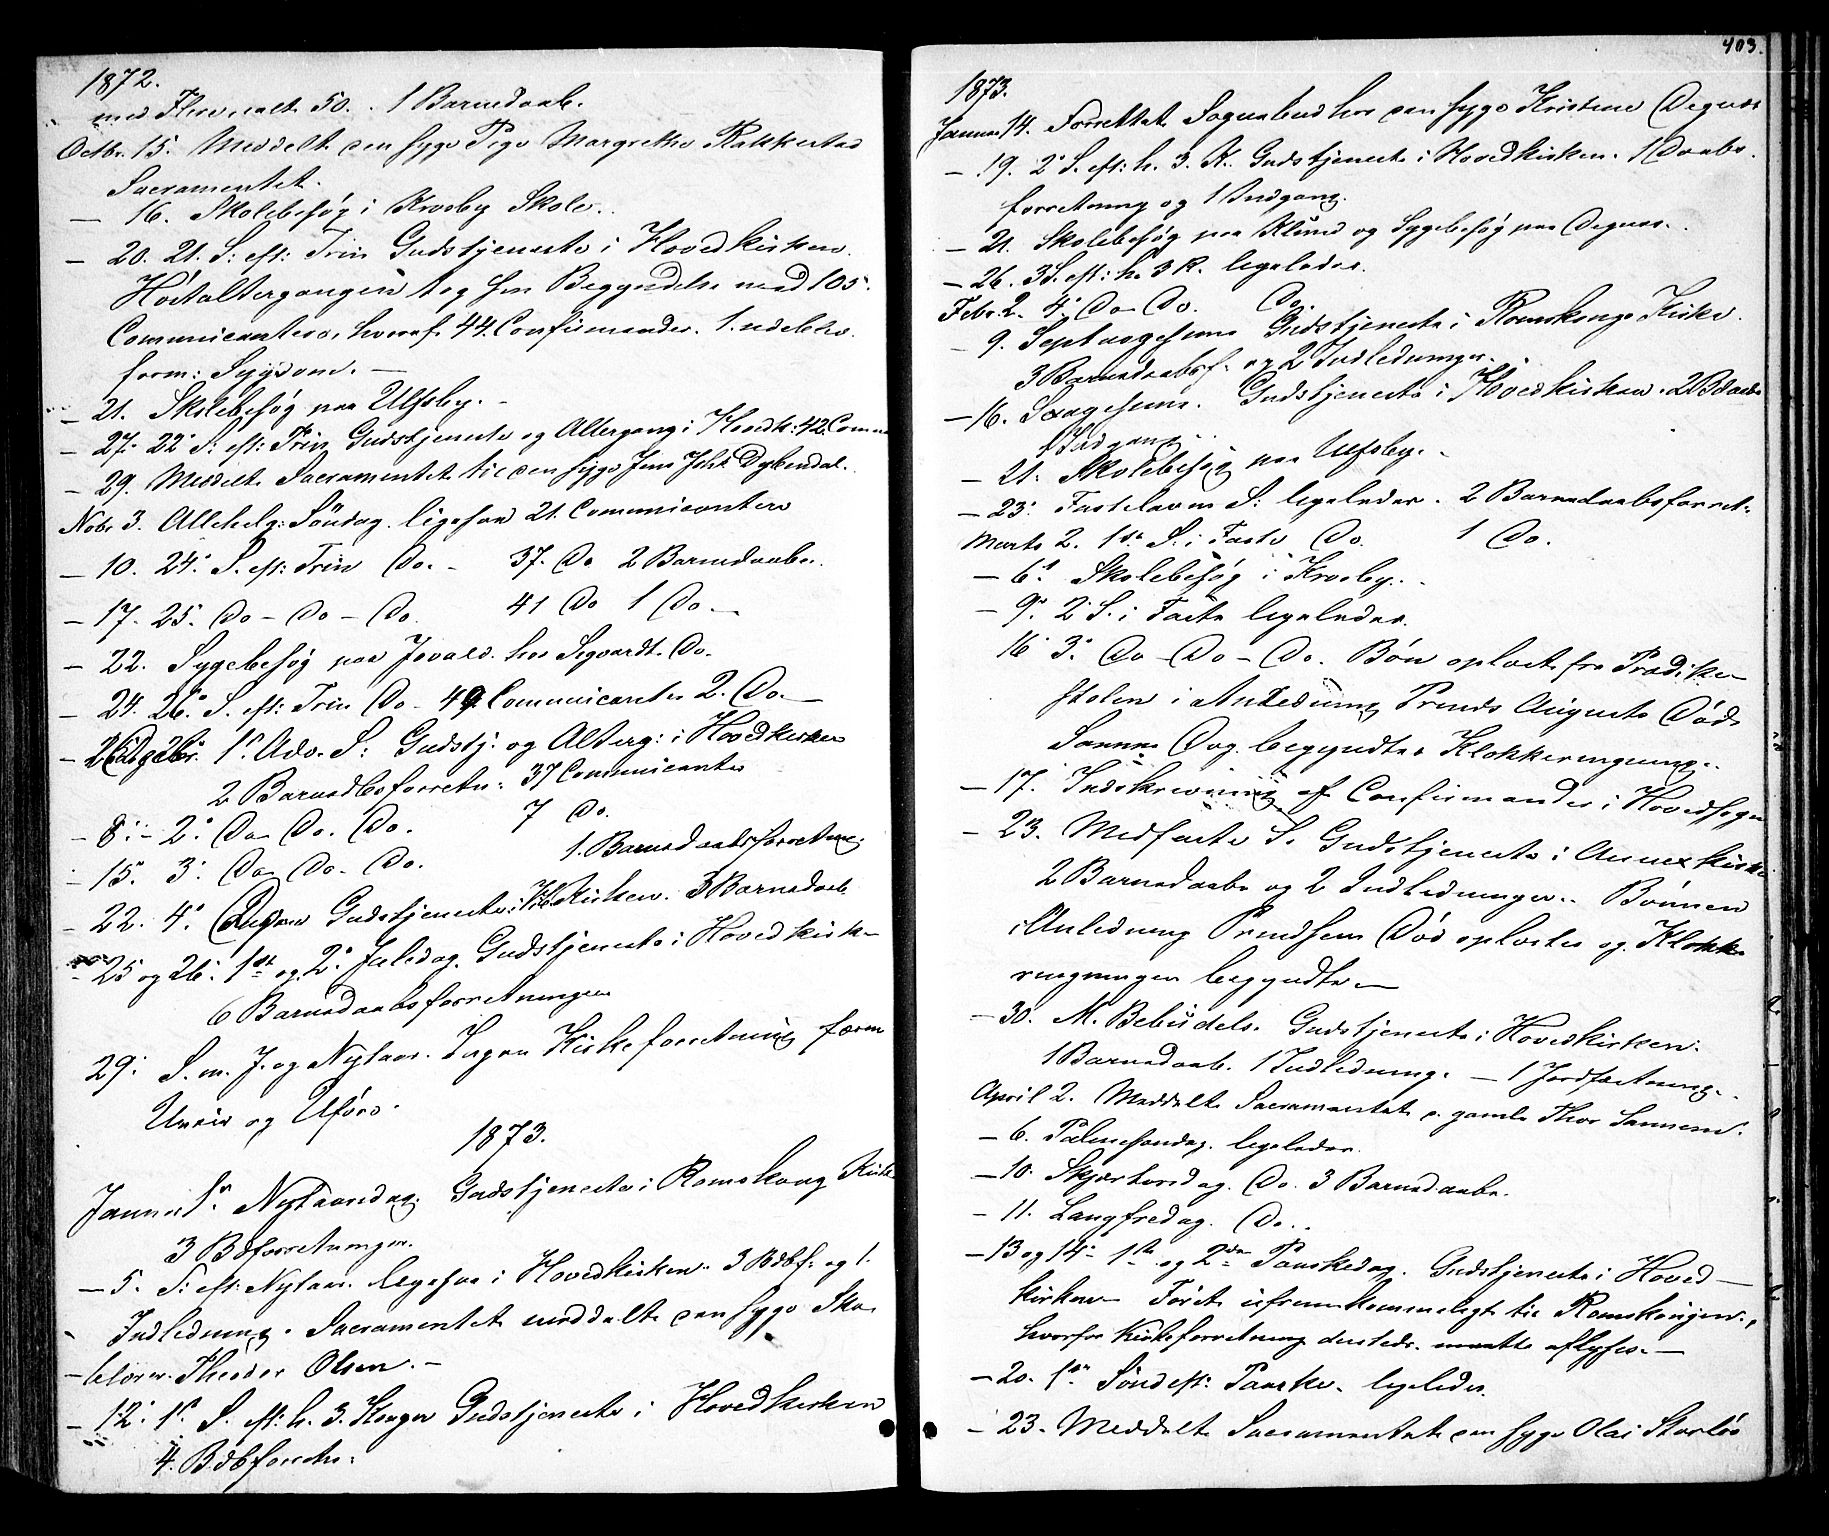 1872.
med Flere, ialt 50. 1 Barnedaab.
Octbr. 15. Meddelt den syge Pige Margrethe Rakkestad
Sacramentet.
— 16. Skolebesøg i Krosby Skole.
— 20. 21. S. eft: Trin Gudstjeneste i Hovedkirken.
Høstaltergangen tog sin Begyndelse med 105
Communicantere, hvoraf 44 Confirmander. 1.
form: Sygdom. —
— 21. Skolebesøg paa Ulfsby.
— 27. 22 S: eft: Trin Gudstjeneste og Altergang i Hovedk: 42 Comm
— 29. Meddelt Sacramentet til den syge Jens Joh: Dybendal.
Nobr 3. Allehelg: Söndag. ligesaa 21. Communicantere
— 10. 24. S. eft: Trin Do. - 37. Do 2 Barnedaabe.
— 17. 25. Do - Do - Do. 41 Do 1 Do —
— 22. Sygebesøg paa hos Sigvardt. Do.
— 24. 26. S. eft: Trin Do - 49 Communicanter 2. Do. —
— 1ste Adv. S: Gudstj: og Alterg: i Hovedkirken
2 Barnedbsforretn: 37 Communicanter
— 8. - 2. Do Do. Do. 7 Do.
— 15. 3. Do Do. Do. 1. Barnedaabsforretning.
— 22. 4. Gudstjeneste i Kirken. 3 Barnedaab
— 25 og 26. 1ste og 2. Juledag. Gudstjeneste i Hovedkirk-
6 Barnedaabsforretninger
29. S. m. J. og Nytaar. Ingen Kirkeforretning form
Uveir og Uføre.
1873.
Januar 1ste Nytaarsdag. Gudstjeneste i Romskoug Kirke
3 Bdforretninger.
— 5. S: eft: Nytaar. ligesaa i Hovedkirken. 3 Bdbf: og 1.
Indledning. Sacramentet meddelt den syge Sko-
lelærer Theodor Olsen. —
— 12. 1ste S. eft: h. 3. Konger Gudstjeneste i Hovedkirken
4. Bdbforretn:
403.
1873.
Januar 14. Forrettet Sognebud hos den syge Kristine Degnæs
— 19. 2. S. eft: h. 3. K. Gudstjeneste i Hovedkirken. 1 Daabs-
forretning og 1 Indgang.
— 21. Skolebesøg paa Klund og Sygebesøg paa Degnæs.
— 26. 3 S. eft: h. 3 K. ligeledes.
Febr. 2. 4. Do Do. Do.
— 9. Septuagesima Gudstjeneste i Romskougs Kirke.
3 Barnedaabsf. og 2 Indledninger.
— 16. Sexagesima. Gudstjeneste i Hovedkirken. 2 Bdaabe
1 Indgang.
— 21. Skolebesøg paa Ulfsby.
— 23. Fastelavns S: ligeledes. 2 Barnedaabsforret-
Marts 2. 1ste S. i Faste Do. 1 Do.
— 6. Skolebesøg i Krosby.
— 9. 2. S. i Faste ligeledes.
16 3. Do - Do - Do. Bøn oplæst fra Prædike-
stolen i Anledning Prinds Augusts Død.
Samme Dag begyndte Klokkeringning.
— 17. Indskrivning af Confirmander i Hovedsogn
— 23. Midfaste S. Gudstjeneste i Annexkirke
2 Barnedaabe og 2 Indledninger. Bönnen
i Anledning Prindsens Død oplæstes og Klokke
ringningen begyndte —
— 30. M. Bebudels. Gudstjeneste i Hovedkirken.
1 Barnedaab. 1 Indledning. — 1 Jordfæstning.
April 2. Meddelt Sacramentet d. gamle Thor Sannem.
— 6. Palmesøndag. ligeledes.
— 10. Skjærtorsdag. Do. 3 Barnedaabe.
— 11. Langfredag. Do.
— 13 og 14. 1ste og 2den Paaskedag. Gudstjeneste i Hoved-
kirken. Føret ufremkommeligt til Romskougen,
hvorfor Kirkeforretning dersteds. maatte aflyses. —
— 20. 1ste Sönd eft: Paaske. ligeledes.
— 23. Meddelt Sacramentet den syge Olai Starløs